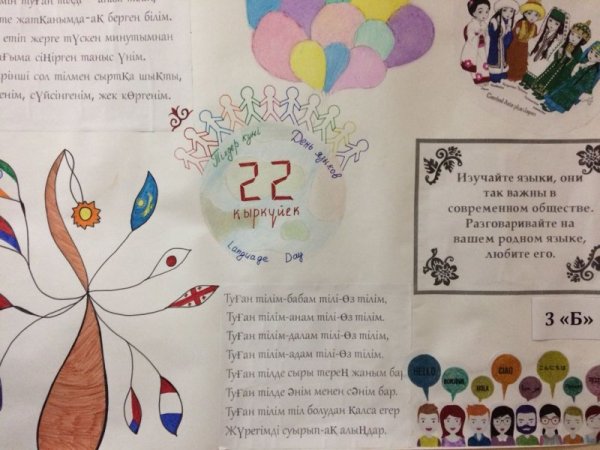 туған
те жатҚанымда-аҚ берген білім.
етіп жерге түскен минутымнан
ғыма сіҢірген таныс Үнім.
рінші сол тілмен сыртҚа шыҚты,
енім, сҮйсінгенім, жек кӨргенім.
Central Asia plus Japan
Тілдер күні
День языков
22
қыркүйек
Language Day
Изучайте языки, они
так важны в
современном обществе.
Разговаривайте на
вашем родном языке,
любите его.
3 «Б»
ТуҒан тілім-бабам тілі-Өз тілім,
ТуҒан тілім-анам тілі-Өз тілім.
ТуҒан тілім-далам тілі-Өз тілім,
ТуҒан тілім-адам тілі-Өз тілім.
ТуҒан тілде сыры тереҢ жаным бар,
ТуҒан тілде Әнім менен сӘнім бар.
ТуҒан тілім тіл болудан Қалса егер
ЖҮрегімді суырып-аҚ алыҢдар.
HELLO
BONJOUR
HOLA
CIAO
こんにちは